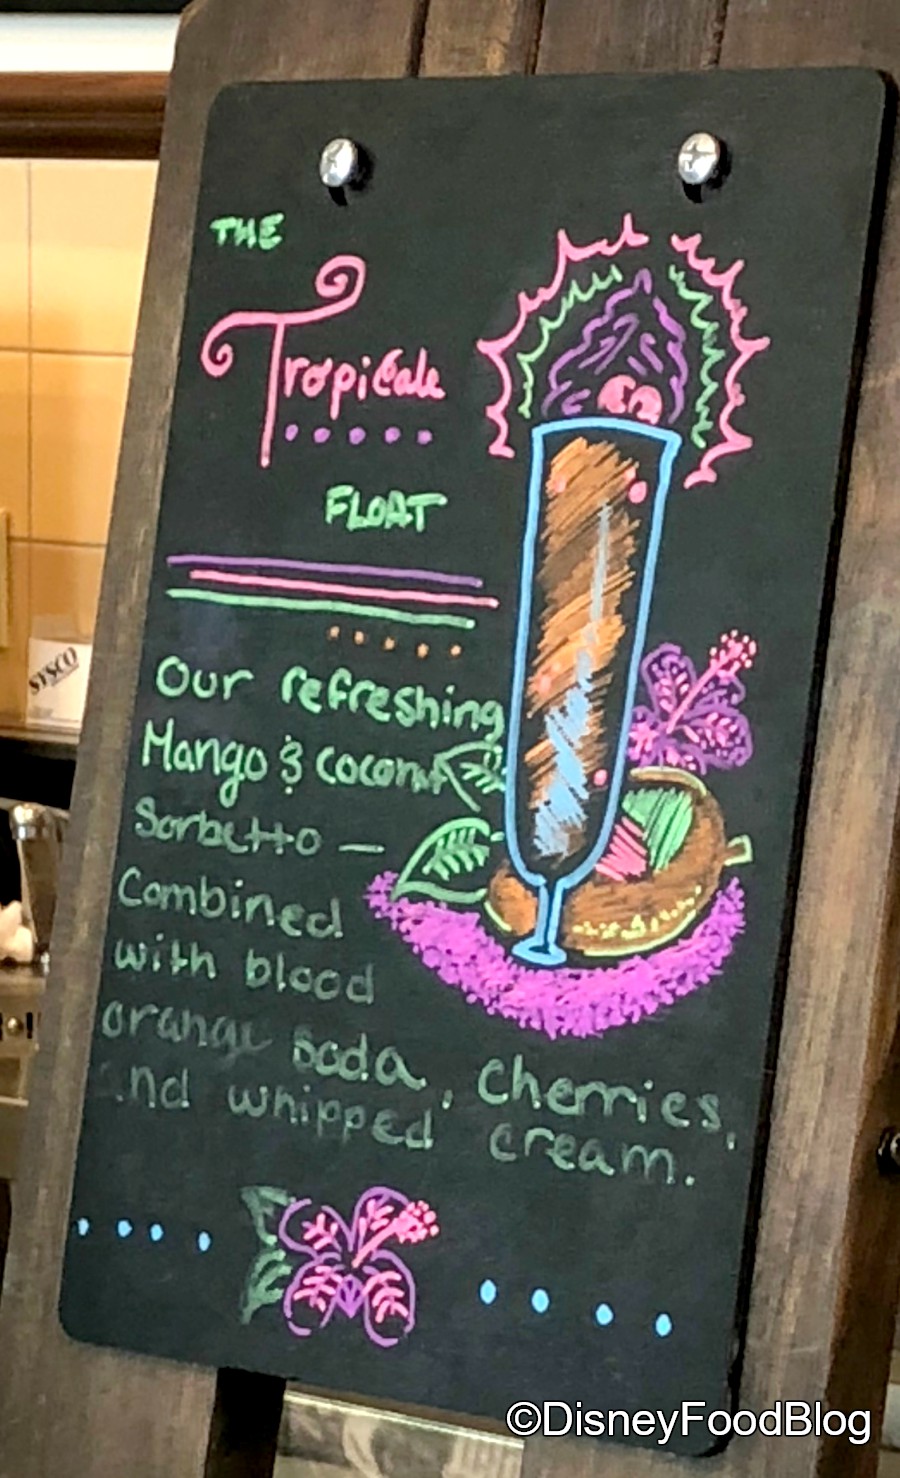 THE
Tropicale
FLOAT
Our refreshing
Mango & coconut
Sorbetto —
Combined
with blood
orange soda, Cherries,
and whipped cream.
SYSCO
©DisneyFoodBlog